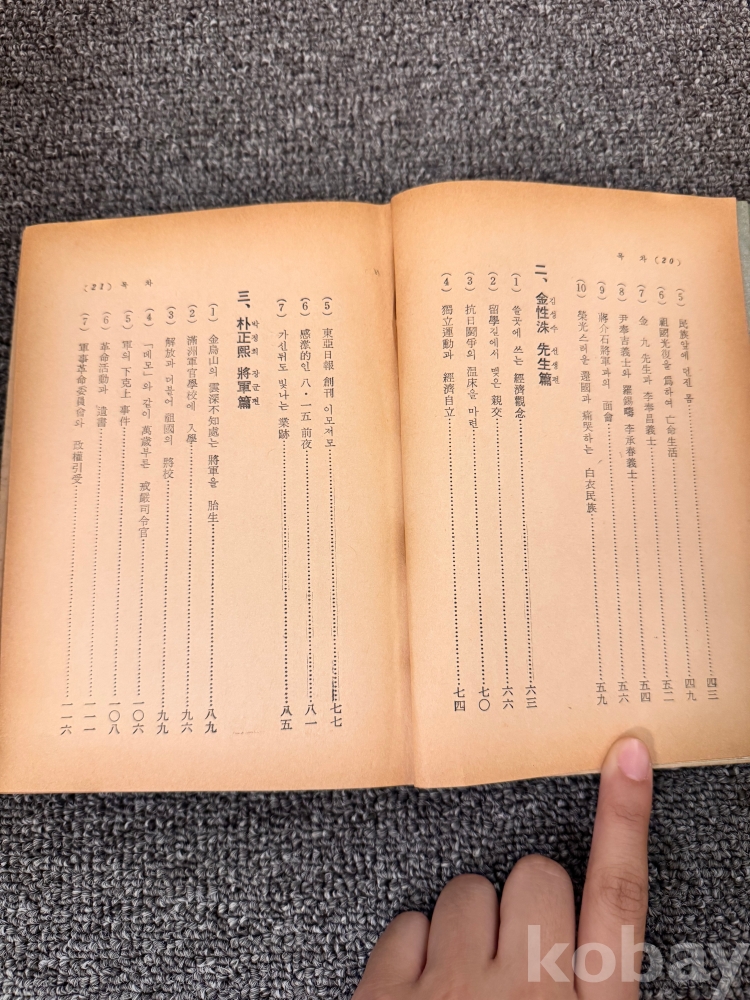 목 차 (20)
(5) 民族앞에 던진 몸 四三
(6) 祖國光復을 爲하여 亡命生活 四九
(7) 金 九 先生과 李奉昌義士 五二
(8) 尹奉吉義士와 羅錫疇 李承春義士 五四
(9) 蔣介石將軍과의 面會 五六
(10) 榮光스러운 還國과 痛哭하는 白衣民族 五九
二、金性洙 先生篇
김성수 선생편
(1) 쓸곳에 쓰는 經濟觀念 六三
(2) 留學길에서 맺은 親交 六六
(3) 抗日鬪爭의 温床을 마련 七〇
(4) 獨立運動과 經濟自立 七四
(5) 東亞日報 創刊 이모저모 七七
(6) 感激的인 八·一五 前夜 八一
(7) 가신뒤도 빛나는 業跡 八五
三、朴正熙 將軍篇
박정희 장군편
(1) 金烏山의 雲深不知處는 將軍을 胎生 八九
(2) 滿洲軍官學校에 入學 九六
(3) 解放과 더불어 祖國의 將校 九九
(4) 「데모」와 같이 萬歲부른 戒嚴司令官 一〇六
(5) 軍의 下克上 事件 一〇八
(6) 革命活動과 遺書 一一一
(7) 軍事革命委員會와 政權引受 一一六
(21) 목 차
kobay